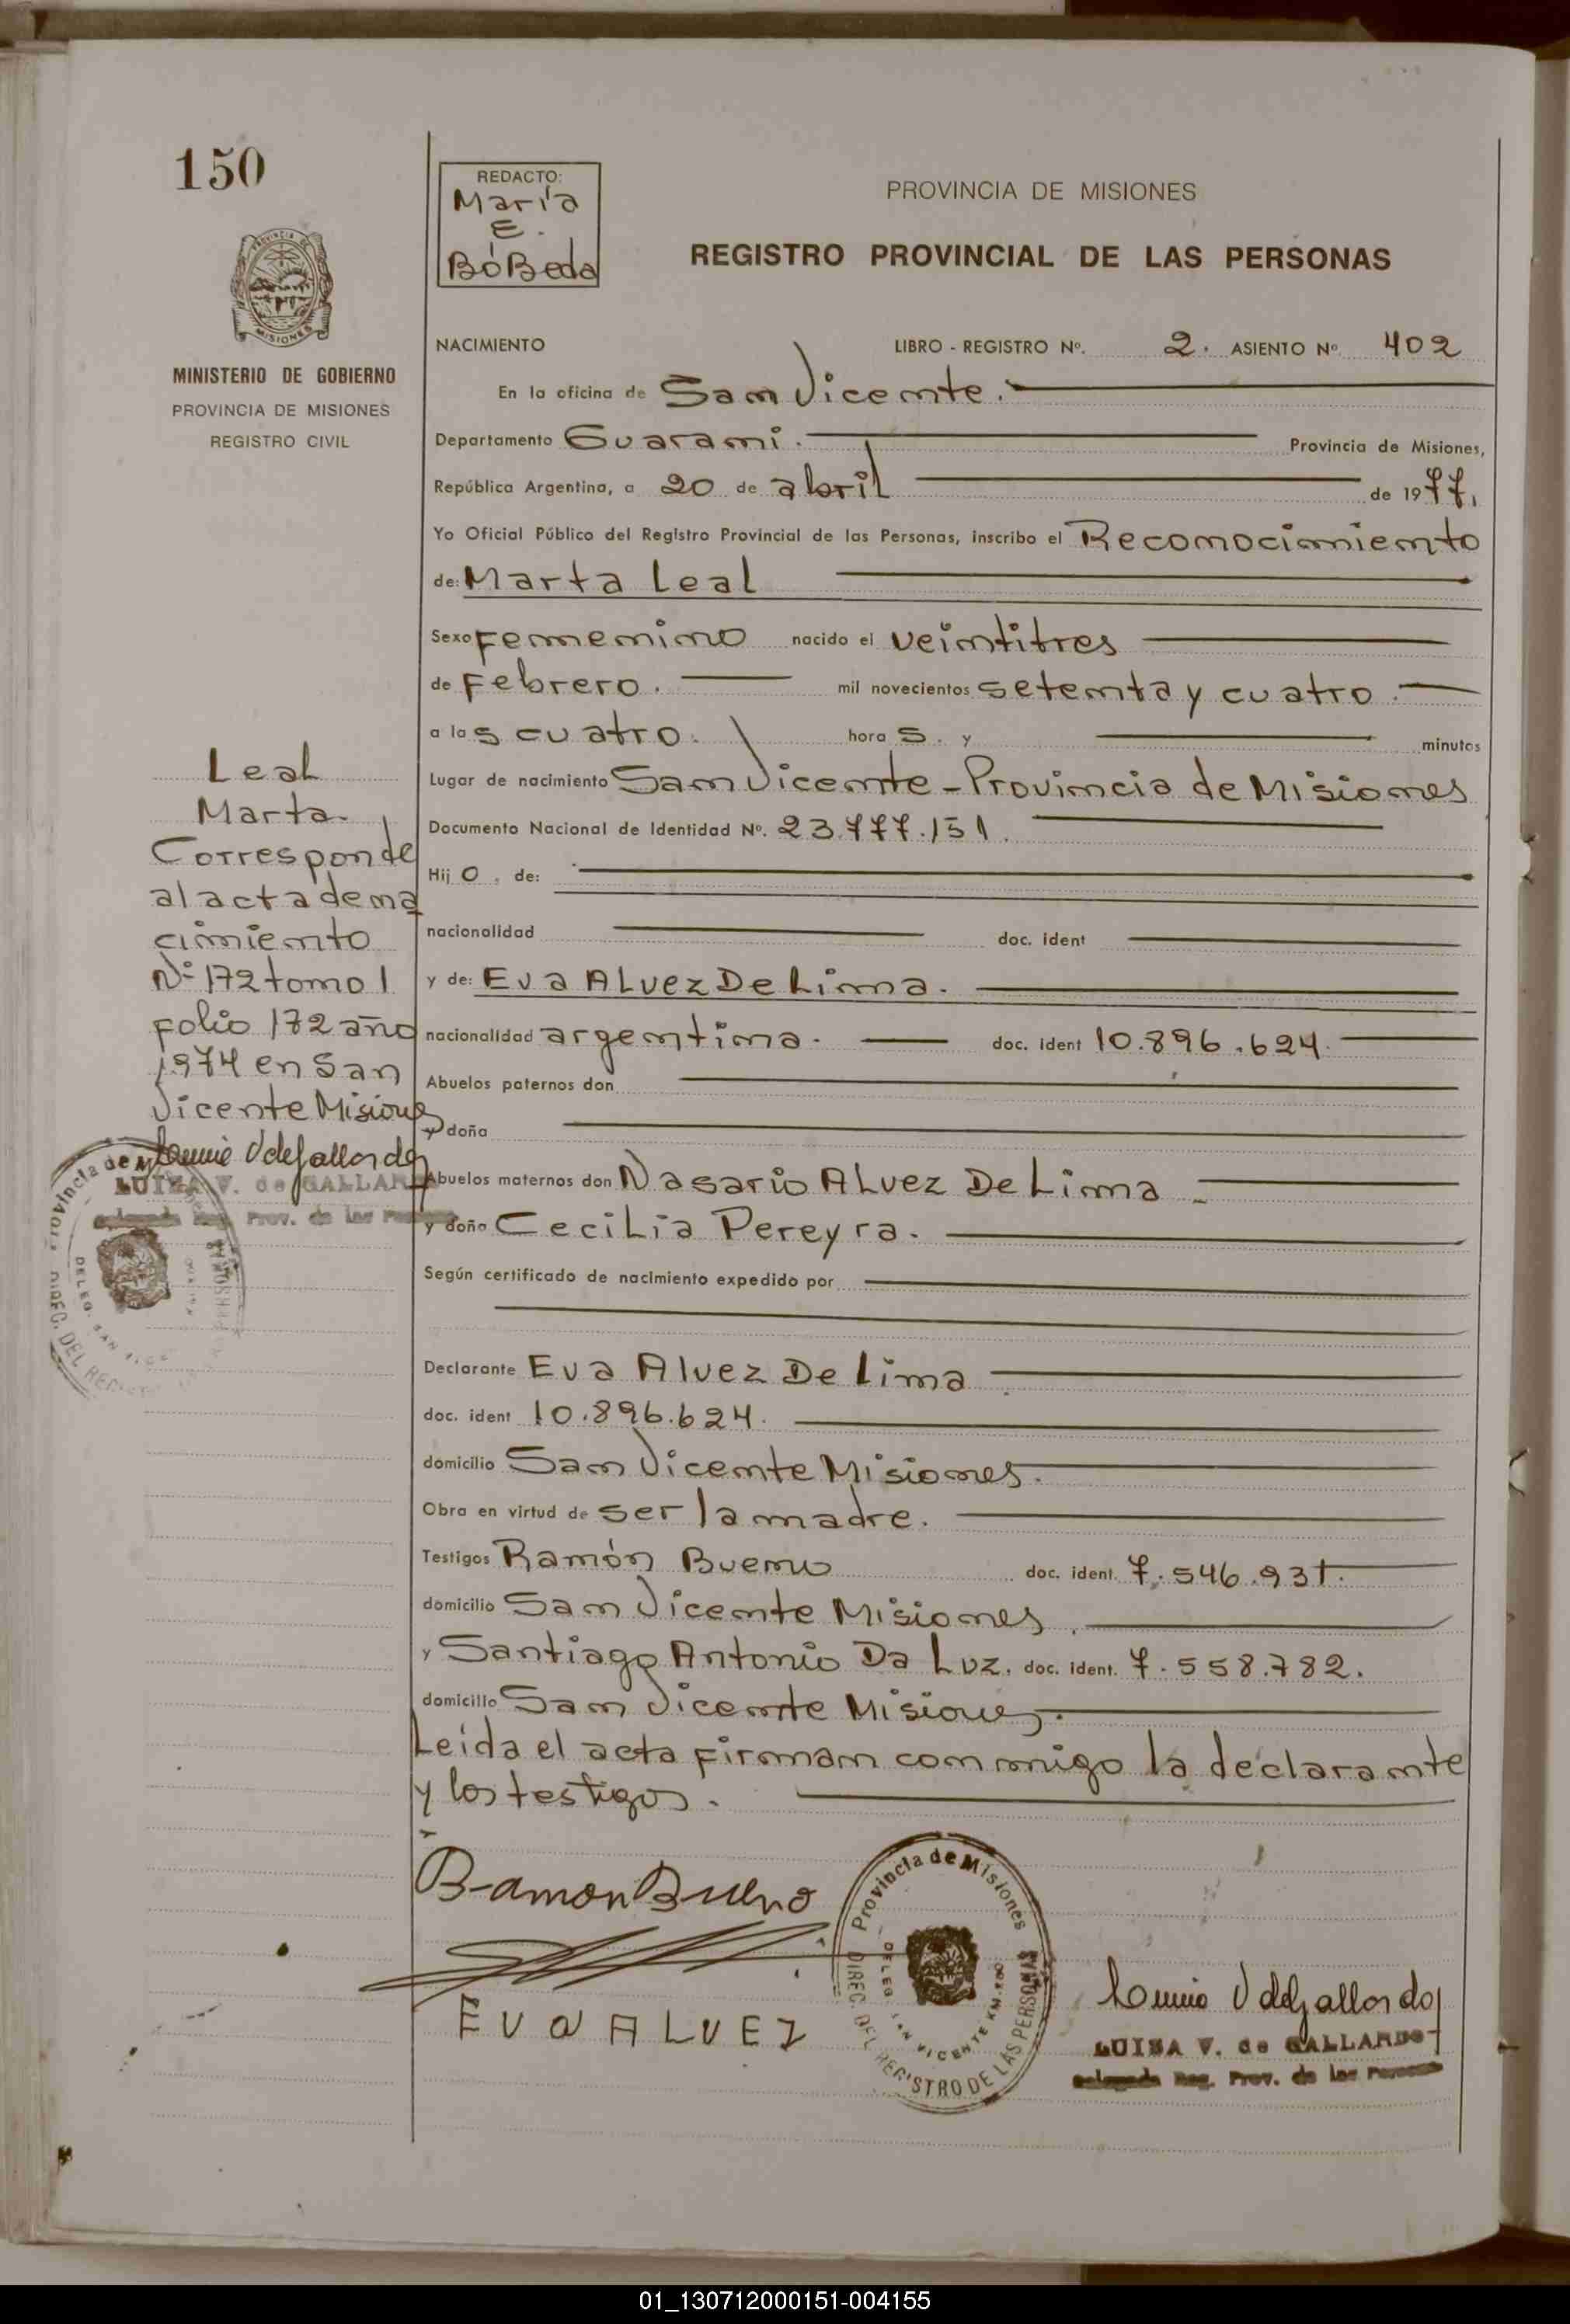 150
REDACTO:
María
E.
BóBeda
PROVINCIA DE MISIONES
REGISTRO PROVINCIAL DE LAS PERSONAS
PROVINCIA DE
MISIONES
MINISTERIO DE GOBIERNO
PROVINCIA DE MISIONES
REGISTRO CIVIL
NACIMIENTO LIBRO - REGISTRO Nº. 2. ASIENTO Nº 402
En la oficina de San Vicente.
Departamento Guaraní. Provincia de Misiones,
República Argentina, a 20 de abril de 1977,
Yo Oficial Público del Registro Provincial de las Personas, inscribo el Reconocimiento
de: Marta Leal
Sexo femenino nacido el veintitres
de Febrero. mil novecientos setenta y cuatro.
a las cuatro. horas. y minutos
Lugar de nacimiento San Vicente - Provincia de Misiones
Documento Nacional de Identidad Nº. 23.777.151.
Hijo. de:
nacionalidad doc. ident
y de: Eva ALvez De Lima.
nacionalidad argentina. doc. ident 10.896.624.
Abuelos paternos don
y doña
Abuelos maternos don Nasario ALvez De Lima
y doña CeciLia Pereyra.
Según certificado de nacimiento expedido por
Declarante Eva Alvez De Lima
doc. ident 10.896.624.
domicilio San Vicente Misiones.
Obra en virtud de ser la madre.
Testigos Ramón Bueno doc. ident. 7.546.931.
domicilio San Vicente Misiones.
y Santiago Antonio Da Luz. doc. ident. 7.558.782.
domicilio San Vicente Misiones.
Leida el acta firman conmigo la declarante
y los testigos.
Leal
Marta.
Corresponde
al acta de na
cimiento
Nº 172 tomo 1
folio 172 año
1974 en San
Vicente Misiones
LUISA V. de GALLARDO
Delegada Reg. Prov. de las Personas
Provincia de Misiones
DIREC. DEL REGISTRO
DELEG. SAN VICENTE
Ramon Bueno
EVA ALVEZ
Provincia de Misiones
DIREC. DEL REGISTRO DE LAS PERSONAS
DELEG. SAN VICENTE KM.
LUISA V. de GALLARDO
Delegada Reg. Prov. de las Personas
01_130712000151-004155